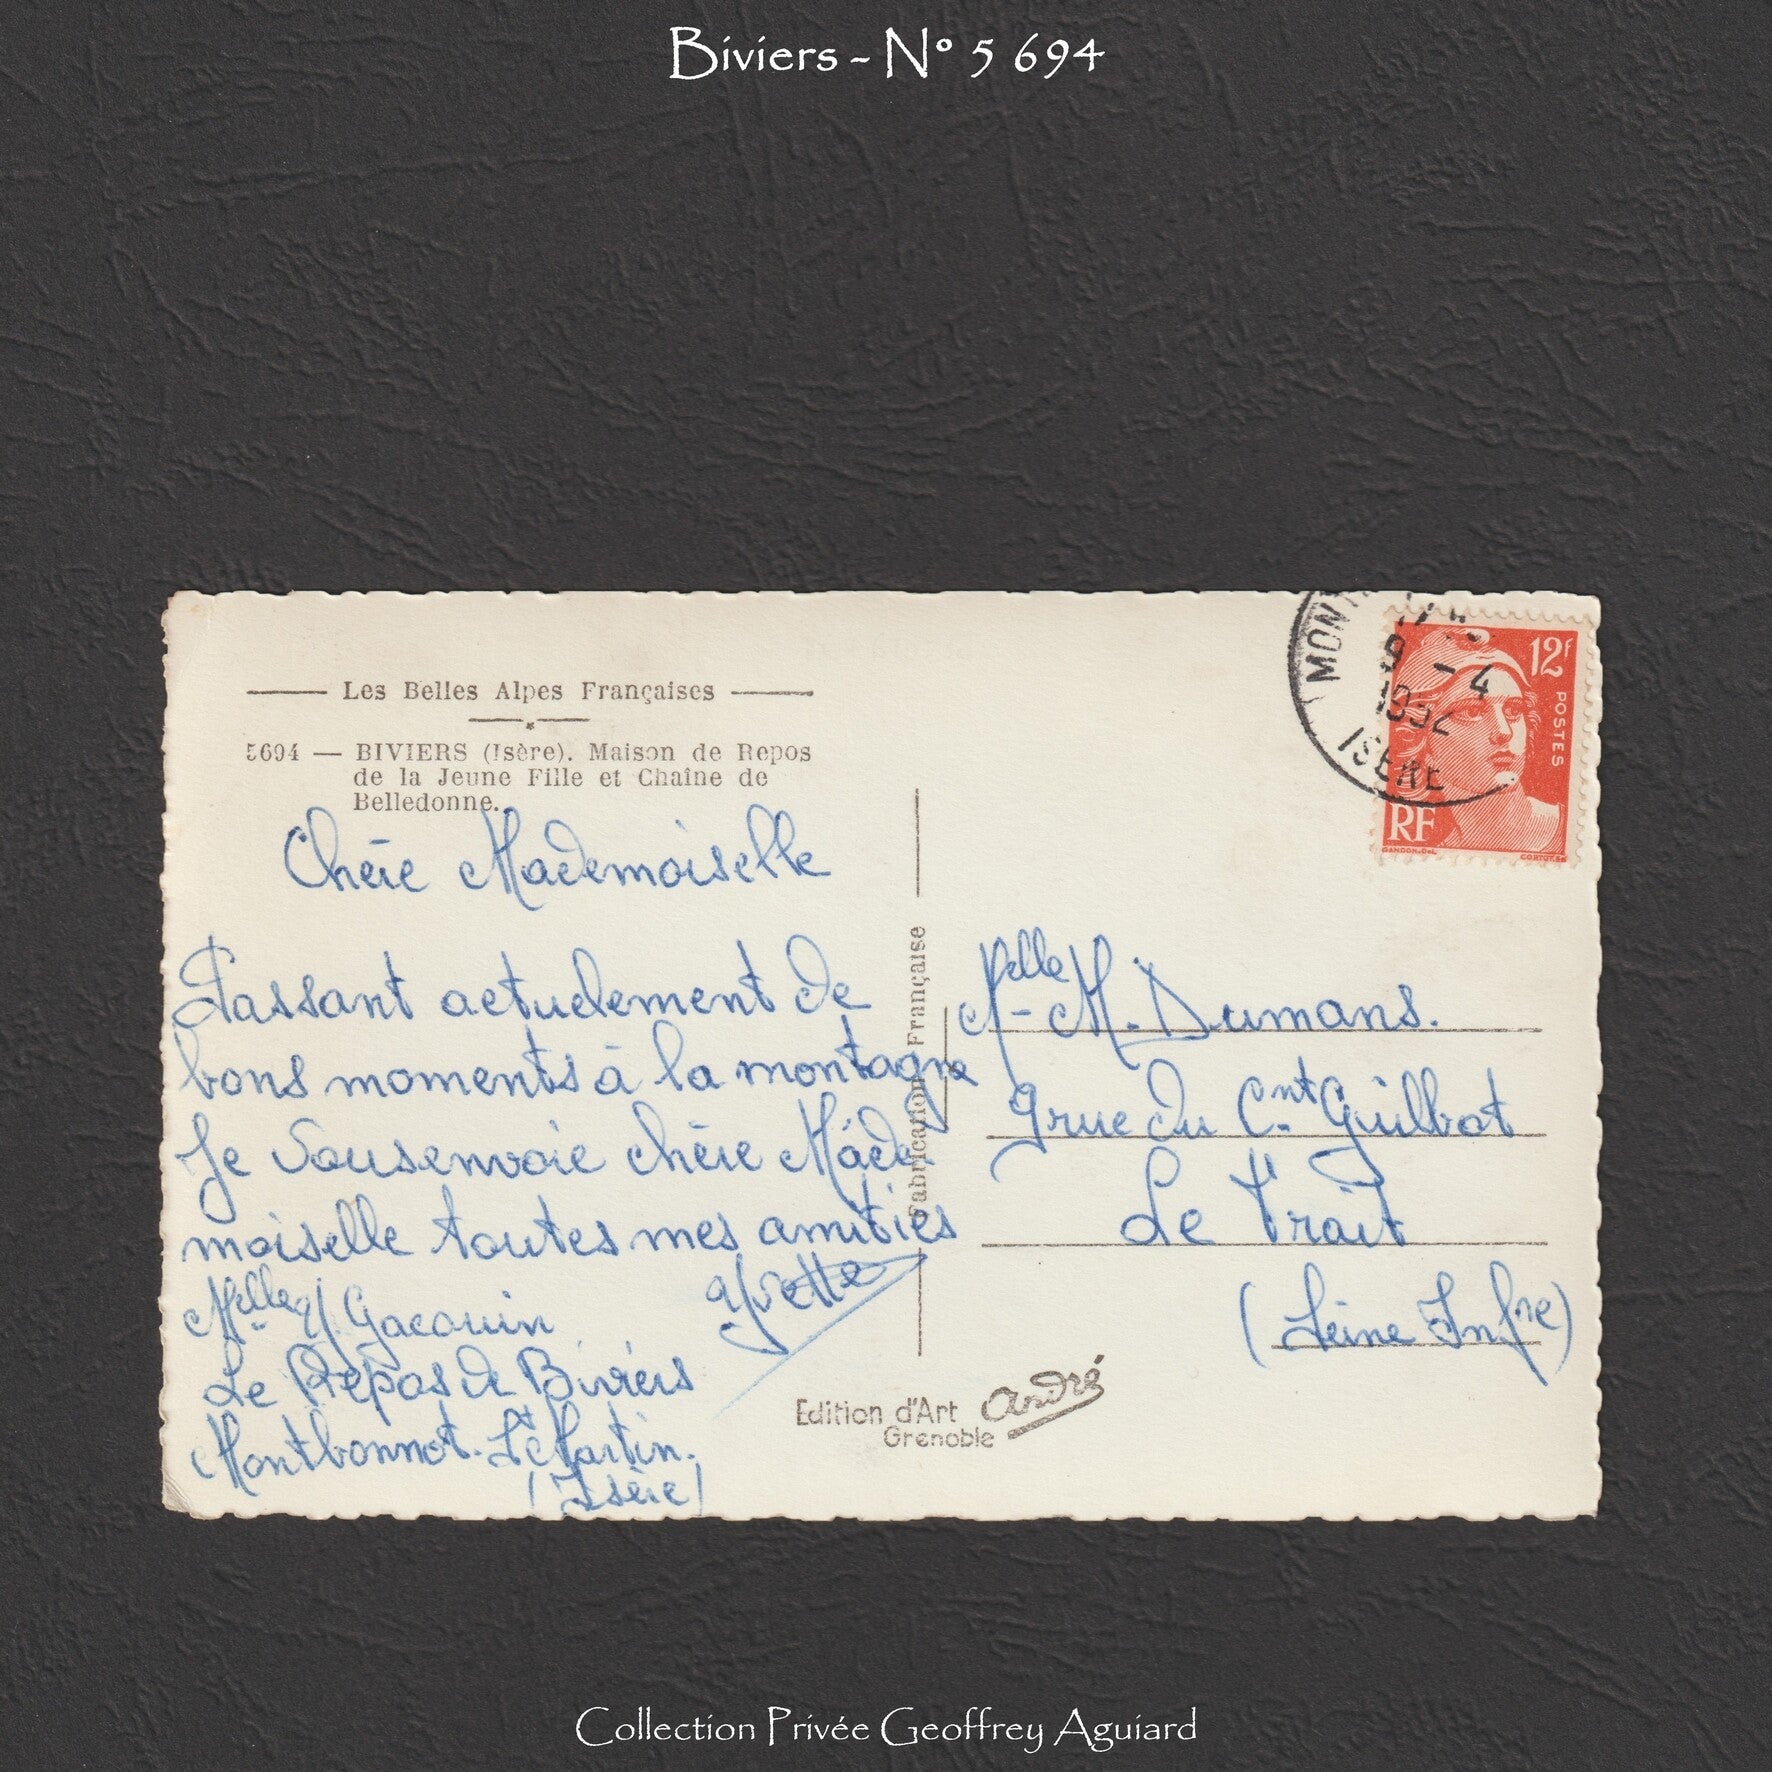 Biviers - N° 5 694
Les Belles Alpes Françaises
5694 — BIVIERS (Isère). Maison de Repos
de la Jeune Fille et Chaîne de
Belledonne.
Chère Mademoiselle
Passant actuelement de
bons moments à la montagne
Je vous envoie chère Made
moiselle toutes mes amitiés
Yvette
Melle Y Gacouin
Le Repos de Biviers
Montbonnot. St Martin.
(Isère)
Fabrication Française
Edition d'Art André
Grenoble
MONT
9 - 4
1952
ISERE
12f
POSTES
RF
GANDON.DEL.
CORTOT.SC
Melle M. Dumans.
9 rue du Cnt Guilbot
Le Trait
(Seine Infre)
Collection Privée Geoffrey Aguiard